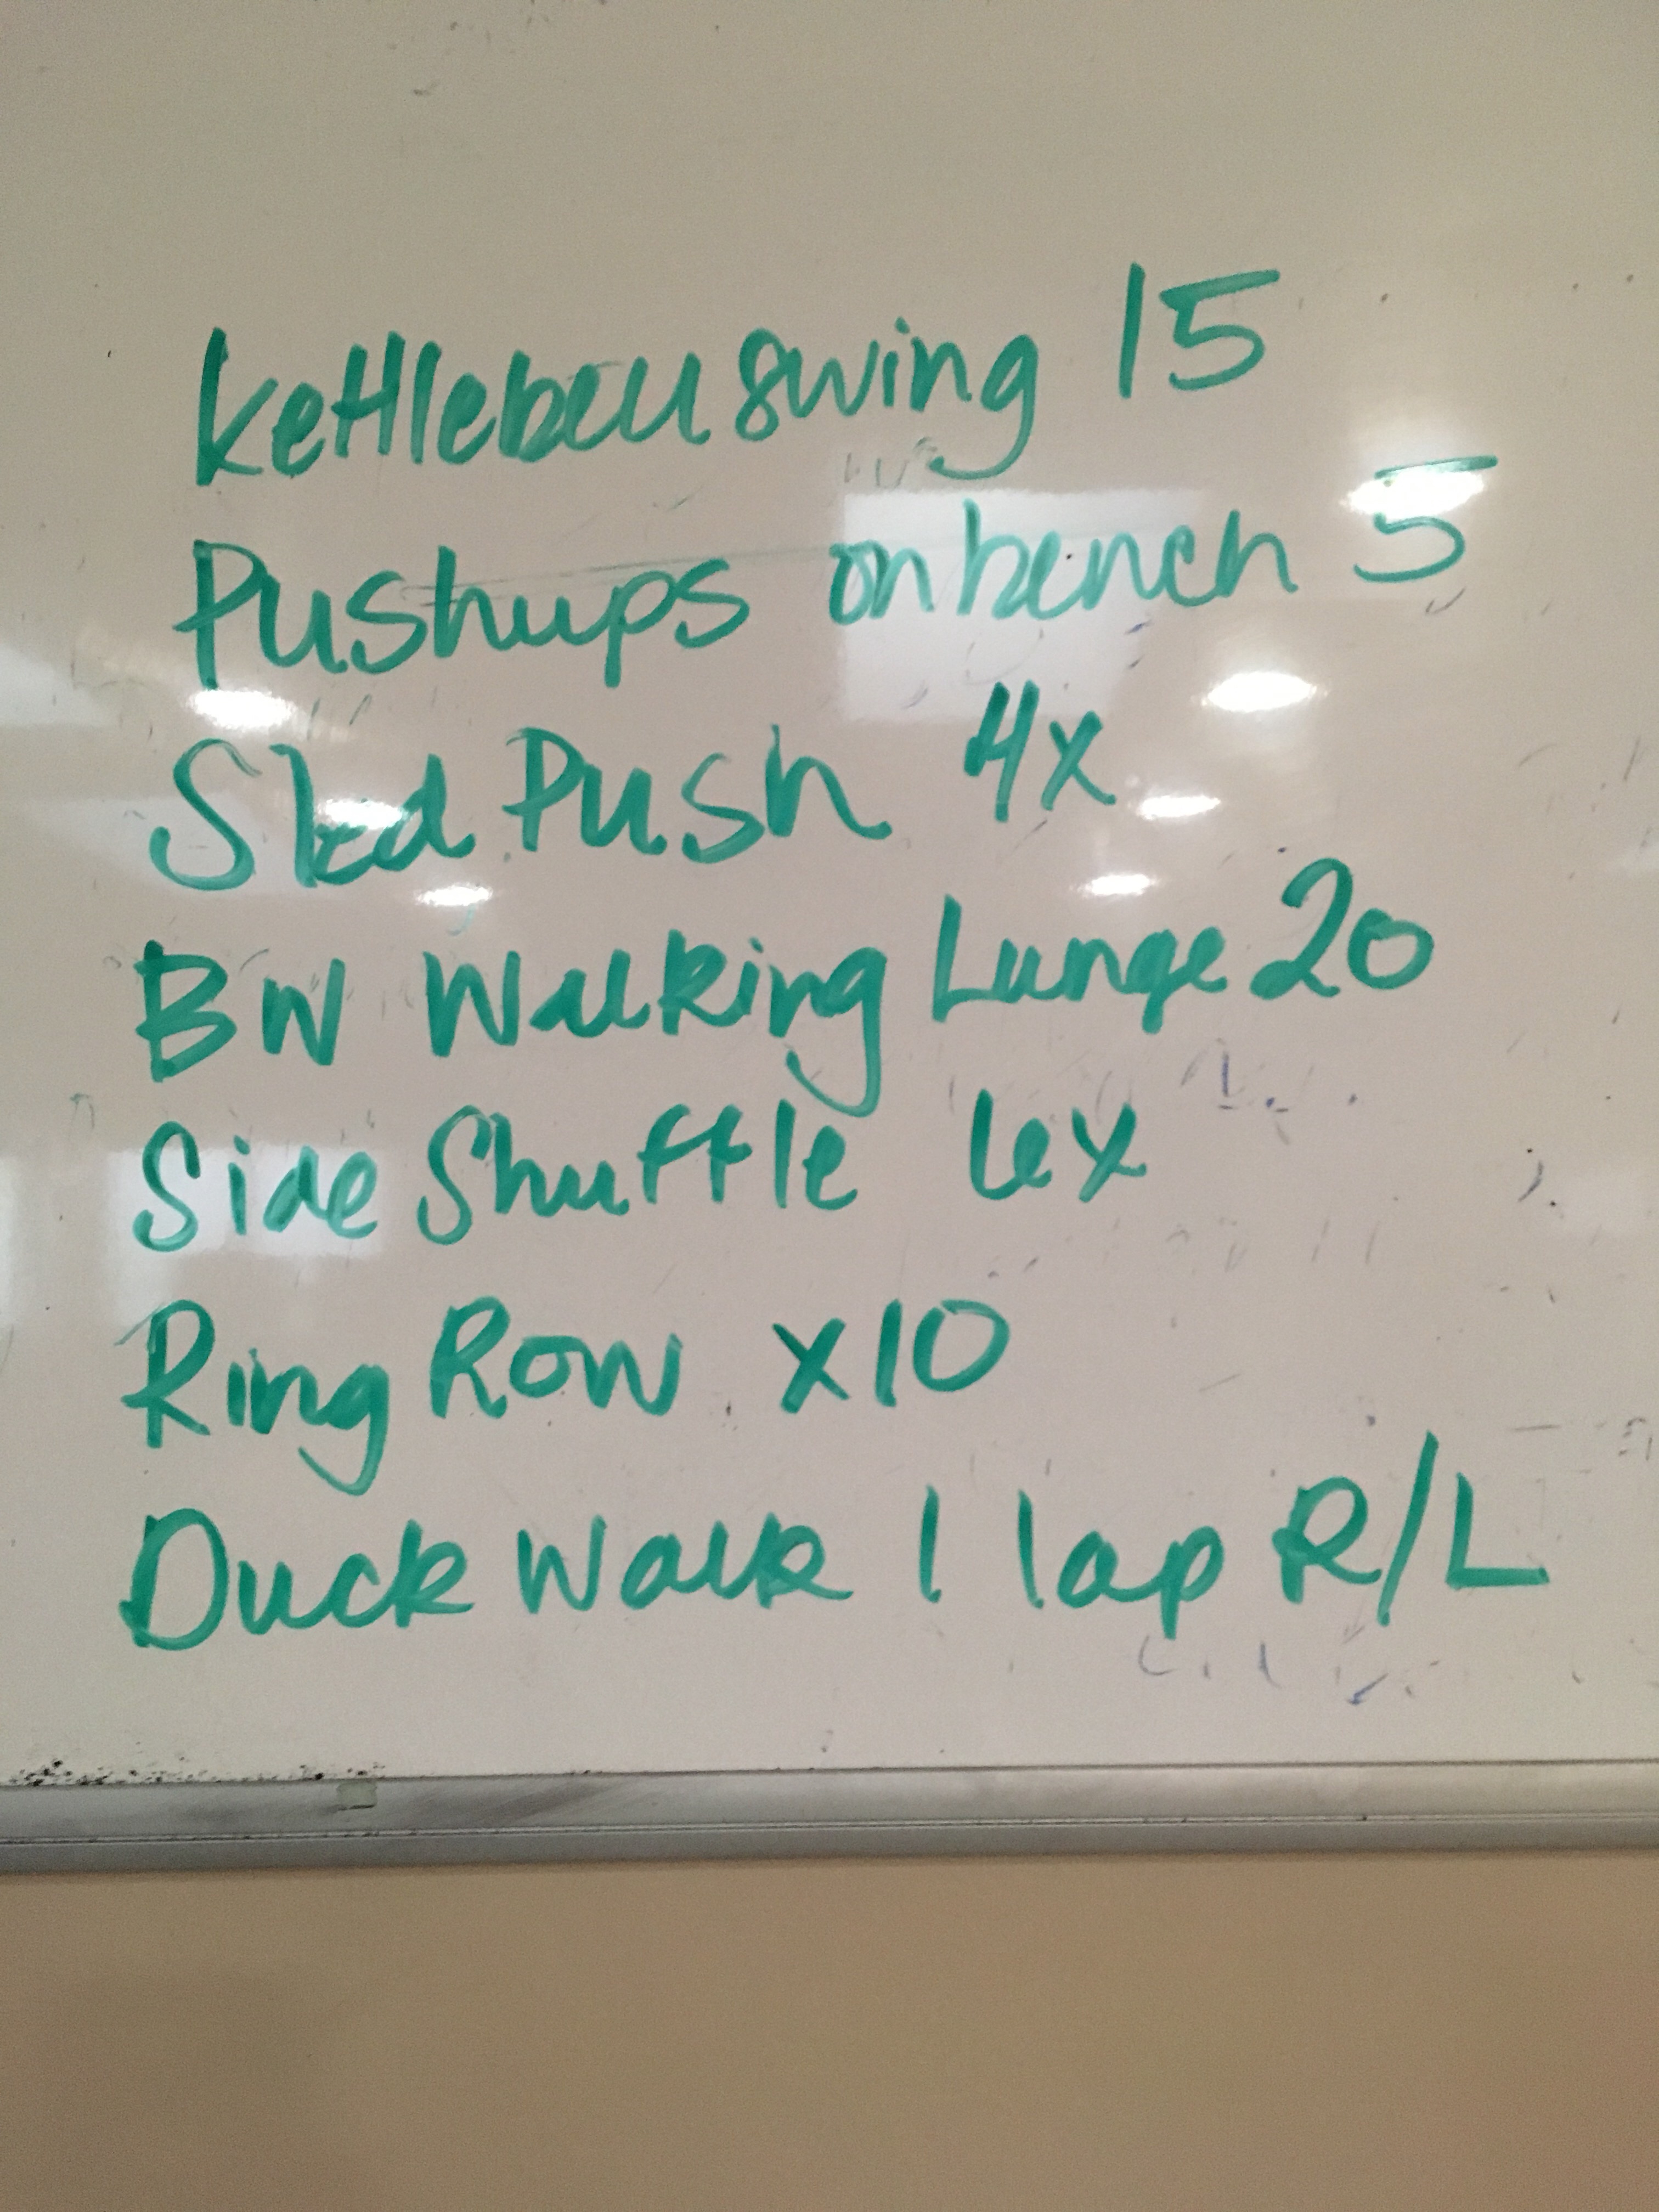 Kettlebell swing 15
Pushups on bench 5
Sled Push 4x
BW Walking Lunge 20
Side Shuffle 6x
Ring Row x10
Duck Walk 1 lap R/L